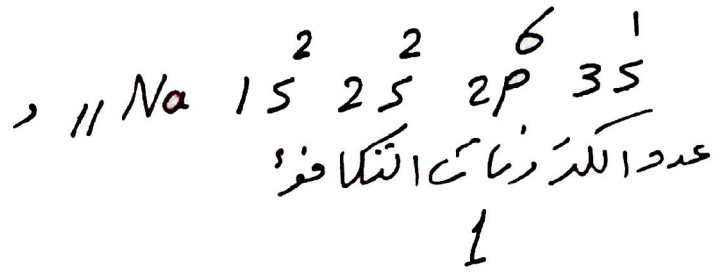 , 11 Na 1s² 2s² 2p⁶ 3s¹
عدد الكترونات التكافؤ
1